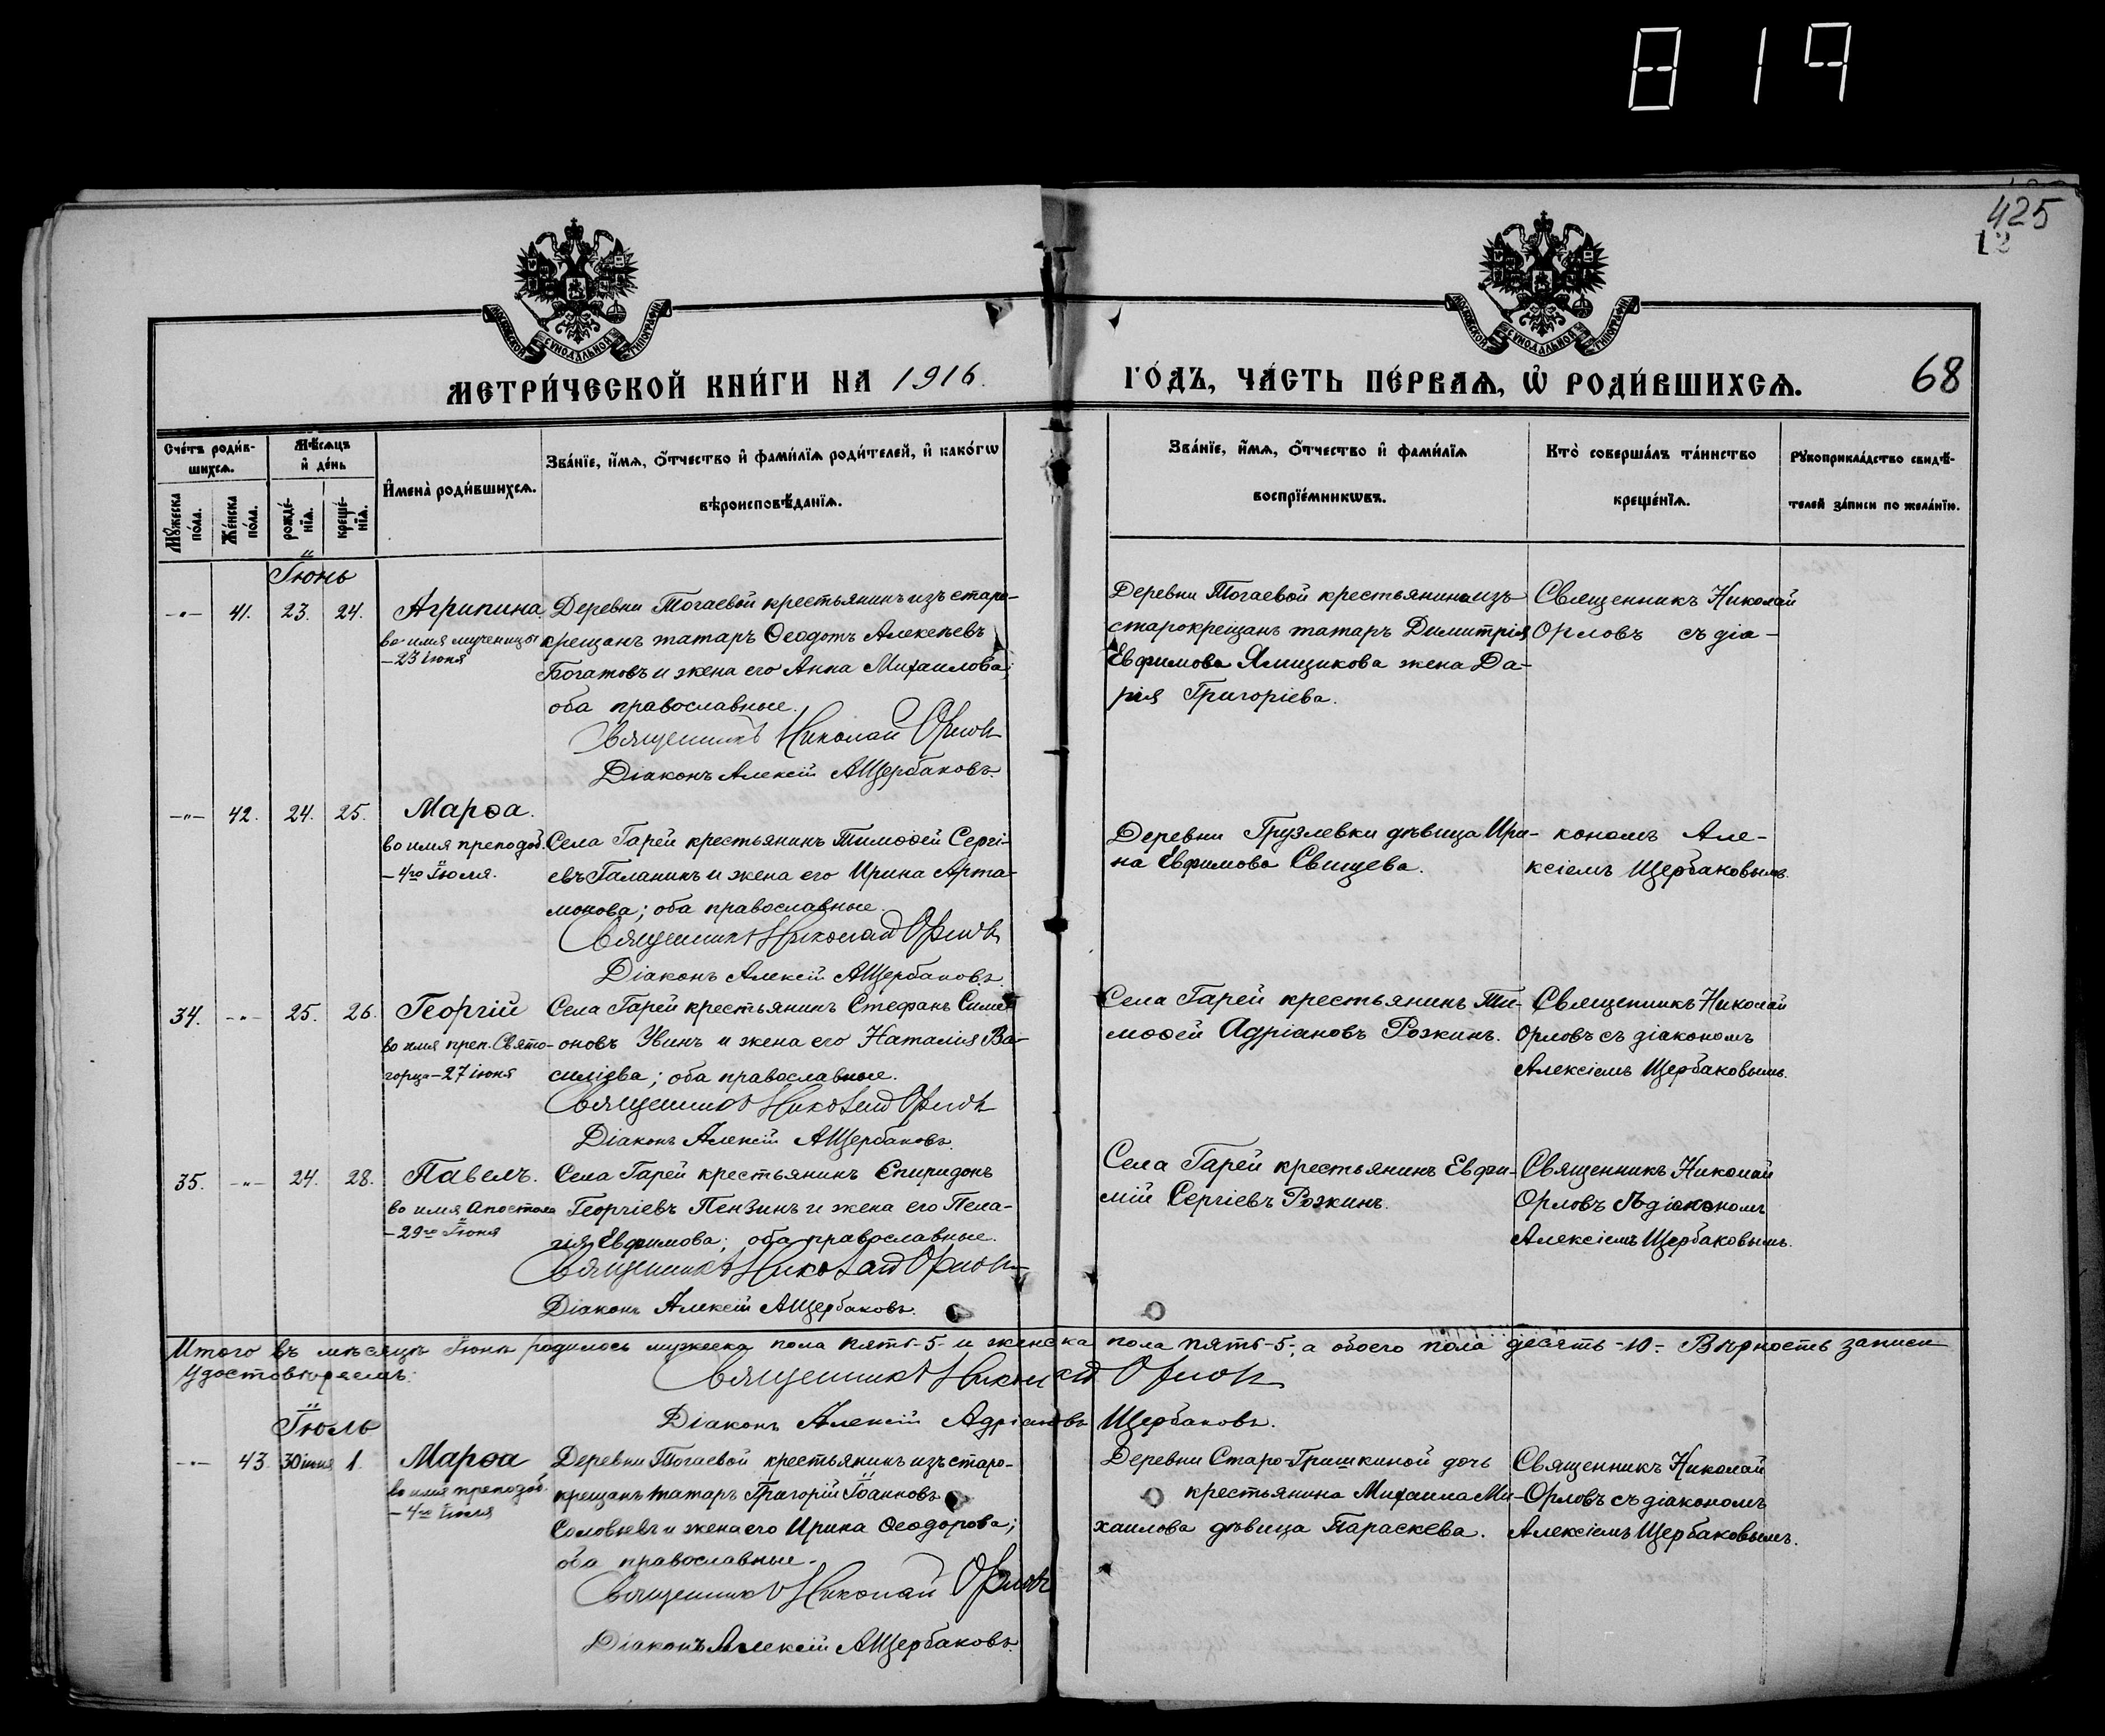 819
425
МОСКОВСКОЙ СѴНОДАЛЬНОЙ ТИПОГРАФІИ
МОСКОВСКОЙ СѴНОДАЛЬНОЙ ТИПОГРАФІИ
МЕТРИ́ЧЕСКОЙ КНИ́ГИ НА 1916.
ГО́ДЪ, ЧА́СТЬ ПЕ́РВАѦ, Ѡ҆ РОДИ́ВШИХСѦ.
68
Сче́тъ роди́в-
шихсѧ.
Мѣ́сѧцъ
и҆ де́нь
Мꙋ́жеска по́ла.
Же́нска по́ла.
рожде́-
нїѧ.
креще́-
нїѧ.
И҆мена̀ роди́вшихсѧ.
Зва́нїе, и҆́мѧ, ѻ҆́тчество и҆ фами́лїѧ роди́телей, и҆ како́гѡ
вѣроисповѣ́данїѧ.
Зва́нїе, и҆́мѧ, ѻ҆́тчество и҆ фами́лїѧ
воспрїе́мникѡвъ.
Кто̀ соверша́лъ та́инство
креще́нїѧ.
Рꙋкоприкла́дство свидѣ́-
телей за́писи по жела́нїю.
Іюнь
-"- 41. 23. 24. Агрипина
во имя мученицы
-23 іюня
Деревни Тогаевой крестьянинъ изъ старо-
крещанъ татаръ Ѳеодотъ Алексѣевъ
Богатовъ и жена его Анна Михаилова;
оба православные.
Священникъ Николай Орловъ
Діаконъ Алексій АЩербаковъ.
Деревни Тогаевой крестьянина изъ
старокрещанъ татаръ Димитрія
Евфимова Ямщикова жена Да-
рія Григоріева.
Священникъ Николай
Орловъ съ діа-
-"- 42. 24. 25. Марѳа.
во имя преподоб.
-4го Іюля.
Села Гарей крестьянинъ Тимоѳей Сергі-
евъ Галанинъ и жена его Ирина Арта-
монова; оба православные.
Священникъ Николай Орловъ
Діаконъ Алексій АЩербаковъ.
Деревни Грузлевки дѣвица Ири-
на Евфимова Свищева.
кономъ Але-
ксіемъ Щербаковымъ.
34. -"- 25. 26. Георгій
во имя преп. Свято-
горца-27 іюня
Села Гарей крестьянинъ Стефанъ Симе-
оновъ Увинъ и жена его Наталія Ва-
силіева; оба православные.
Священникъ Николай Орловъ
Діаконъ Алексій АЩербаковъ.
Села Гарей крестьянинъ Ти-
моѳей Адріановъ Рожкинъ.
Священникъ Николай
Орловъ съ діакономъ
Алексіемъ Щербаковымъ.
35. -"- 24. 28. Павелъ.
во имя Апостола
-29го Іюня
Села Гарей крестьянинъ Спиридонъ
Георгіевъ Пензинъ и жена его Пела-
гія Евфимова; оба православные.
Священникъ Николай Орловъ
Діаконъ Алексій АЩербаковъ.
Села Гарей крестьянинъ Евфи-
мій Сергіевъ Рожкинъ.
Священникъ Николай
Орловъ съ діакономъ
Алексіемъ Щербаковымъ.
Итого въ мѣсяцѣ Іюнѣ родилось мужеска пола пять-5- и женска пола пять-5-, а обоего пола десять-10-. Вѣрность записи
удостовѣряемъ:
Священникъ Николай Орловъ
Діаконъ Алексій Адріановъ Щербаковъ.
Іюль
-"- 43. 30 іюня 1. Марѳа
во имя преподоб.
-4го іюля
Деревни Тогаевой крестьянинъ изъ старо-
крещанъ татаръ Григорій Іоанновъ
Соловьевъ и жена его Ирина Ѳеодорова;
оба православные.
Священникъ Николай Орловъ
Діаконъ Алексій АЩербаковъ.
Деревни Старо-Гришкиной дочь
крестьянина Михаила Ми-
хаилова дѣвица Параскева.
Священникъ Николай
Орловъ съ діакономъ
Алексіемъ Щербаковымъ.